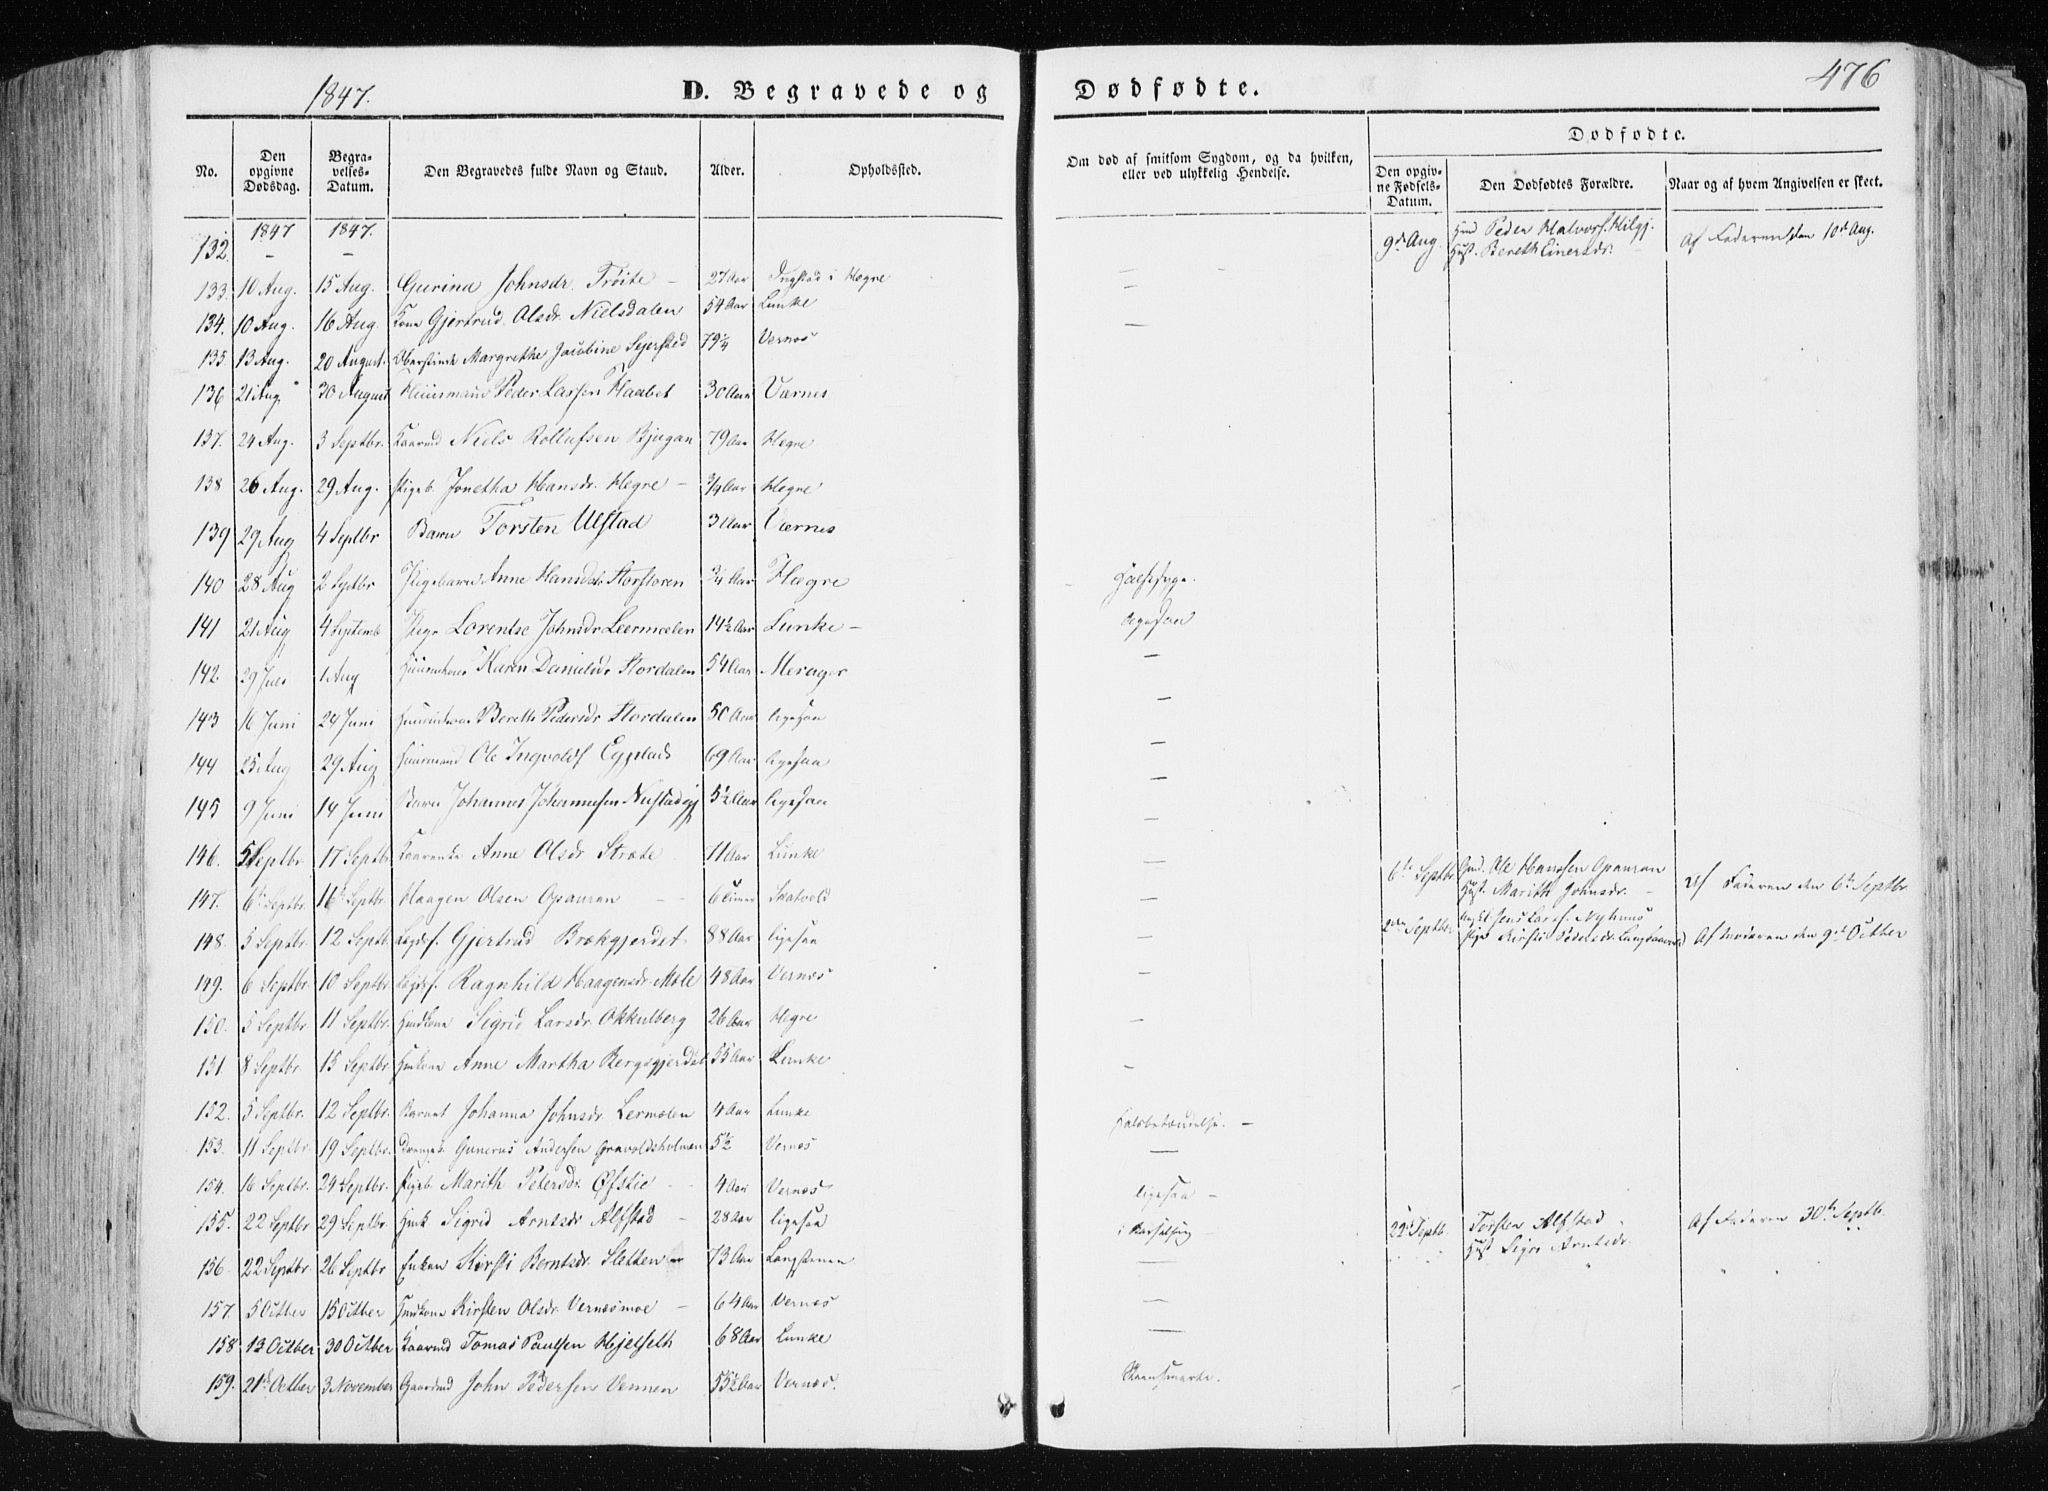 1847.
D. Begravede og Dødfødte.
476
No.
Den opgivne Dødsdag.
Begravelses-Datum.
Den Begravedes fulde Navn og Stand.
Alder.
Opholdssted.
Om død af smitsom Sygdom, og da hvilken, eller ved ulykkelig Hendelse.
Dødfødte.
Den opgivne Fødsels-Datum.
Den Dødfødtes Forældre.
Naar og af hvem Angivelsen er skeet.
1847 1847.
132. – – 9de Aug. Peder Halvors. Hilgj. Hust. Bereth Einersdr. Af Faderen den 10de Aug.
133. 10 Aug. 15 Aug. Gurina Johnsdr. Trøite – 27 Aar Ingstad i Hegre –
134. 10 Aug. 16 Aug. Kone Gjertrud Olsdr. Nielsdalen 54 Aar Lunke –
135. 13 Aug. 20 August. Margrethe Jacobine Sejersted 79¼ Vernøs –
136 21 Aug 30 August Huusmand Peder Larsen Haabet 30 Aar Værnes
137. 24 Aug. 3 Septbr. Kaarmd Niels Rollufsen Bjugan 79 Aar Hegre
138 26 Aug. 29 Aug. Pigeb. Jonetha Hansdr. Hegre – ¾ Aar Hegre
139 29 Aug 4 Septbr Barn Torsten Ulstad 3 Aar Værnes
140 28 Aug 2 Septbr Pigebarn Anne Hansdr Storfloren ¾ Aar Hægre Halssyge.
141 21 Aug 4 Septemb Pige Lorentse Johnsdr Leermælen 14½ Aar Lunke – ligesaa
142. 29 Juli 1 Aug Karen Danielsdr Stordalen 54 Aar Merager –
143 16 Juni 24 Juni Bereth Pedersdr Stordalen 50 Aar ligesaa –
144 25 Aug 29 Aug Huusmand Ole Ingvoldsf Egplads 69 Aar ligesaa –
145 9 Juni 14 Juni Barn Johannes Johannesen 5½ Aar ligesaa –
146. 5 Septbr 17 Septbr Anne Olsdr Stræte 71 Aar Lunke –
147. 6te Septbr 16de Septbr Haagen Olsen Opauran – 6 Timer Skatvold – 6te Septbr. Gmd. Ole Hanssen Opauran Hust. Marith Johnsdr. – Af Faderen den 6te Septbr
148. 5 Septbr. 12 Septb. Lægdsf. Gjertrud Brækgjerdet 88 Aar ligesaa – Septber Jens Lars. Nyhuus Pige Kirsti Pedersdr. Af Moderen den 9de Octber
149. 6 Septbr. 10 Septbr. Lægdsf. Ragnhild Haagensdr. Mæle 48 Aar Vernæs –
150. 5 Septbr. 11 Septbr. Sigrid Larsdr. Okkulberg 26 Aar Hegre –
151. 8 Septbr. 15 Septbr. Anne Martha Bergsgjerdet 55 Aar Lunke –
152. 5 Septbr. 12 Septbr. Barnet Johanna Johnsdr Lermælen 4 Aar Lunke Halsbetændelse. –
153. 11 Septbr. 19 Septbr. Drengeb. Gunerus Andersen 5½ Vernæs –
154. 16 Septbr. 24 Septbr. Pigeb Marith Petersdr. Øfstie – 4 Aar Vernæs ligesaa –
155. 22 Septbr 29 Septbr. Sigrid Arntsdr. Alfstad – 28 Aar ligesaa i Barselseng – Septb. Torsten Alfstad Hust Sigri Arntsdr. Af Faderen 30te Septb.
156. 22 Septbr 26 Septbr Enken Kirsti Berntsdr. Sletten 73 Aar Langstenen –
157 5 Octber 15 Octber Kirsten Olsdr. Vernæsmoe – 64 Aar Vernæs –
158 13 Octber 30 Octber Kaarmd Tomas Paulsen Hjelseth 68 Aar Lunke –
159. 21de Octber 3 November Gaardmd John Pedersen Vennen 55½ Aar Vernæs.